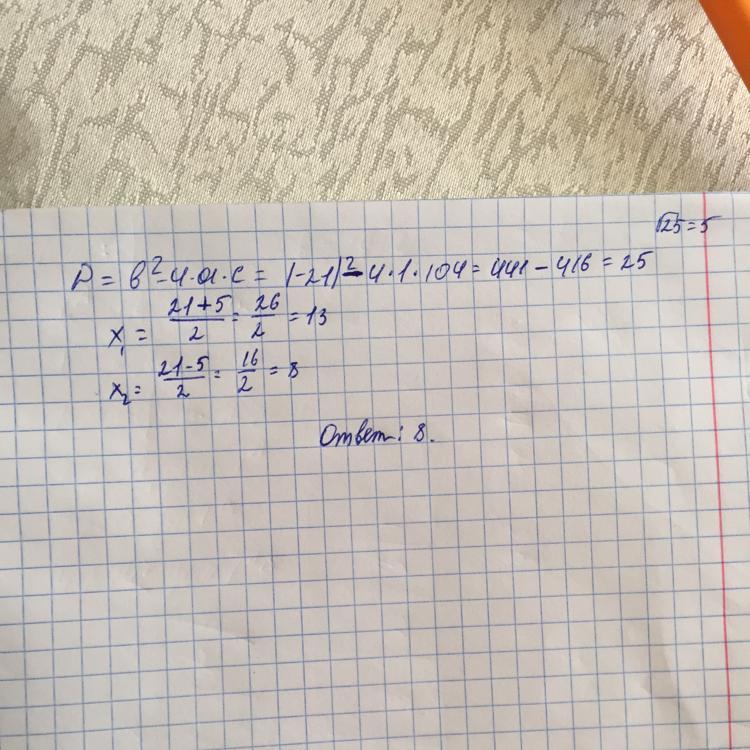 √25=5
D = b²-4·a·c = (-21)²-4·1·104 = 441-416 = 25
x₁ = (21+5)/2 = 26/2 = 13
x₂ = (21-5)/2 = 16/2 = 8
Ответ: 8.